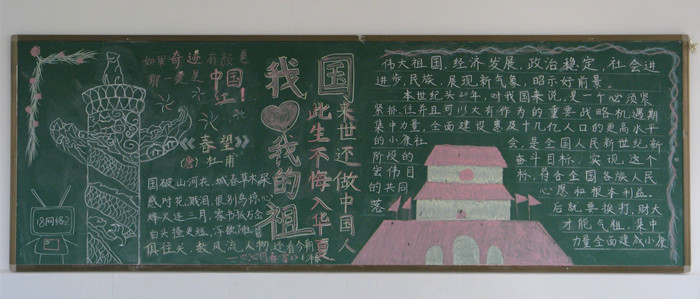 如果奇迹有颜色
那一定是
中国
红!
《春望》
(唐)杜甫
国破山河在,城春草木深
感时花溅泪,恨别鸟惊心
烽火连三月,家书抵万金
白头搔更短,浑欲
俱往矣,数风流人物,还看今朝
觅网络
我❤我的祖
国
此生不悔入华夏
来世还做中国人
伟大祖国,经济发展,政治稳定,社会进
进步,民族,展现新气象,昭示好前景。
本世纪头20年,对我国来说,是一个必须紧
紧抓住并且可以大有作为的重要战略机遇期
集中力量,全面建设惠及十几亿人口的更高水平
的小康社会,是全国人民新世纪新
阶段的奋斗目标。实现这个
宏伟目标,符合全国各族人民
的共同心愿和根本利益。
落后就要挨打,财大
才能气粗,集中
力量全面建成小康